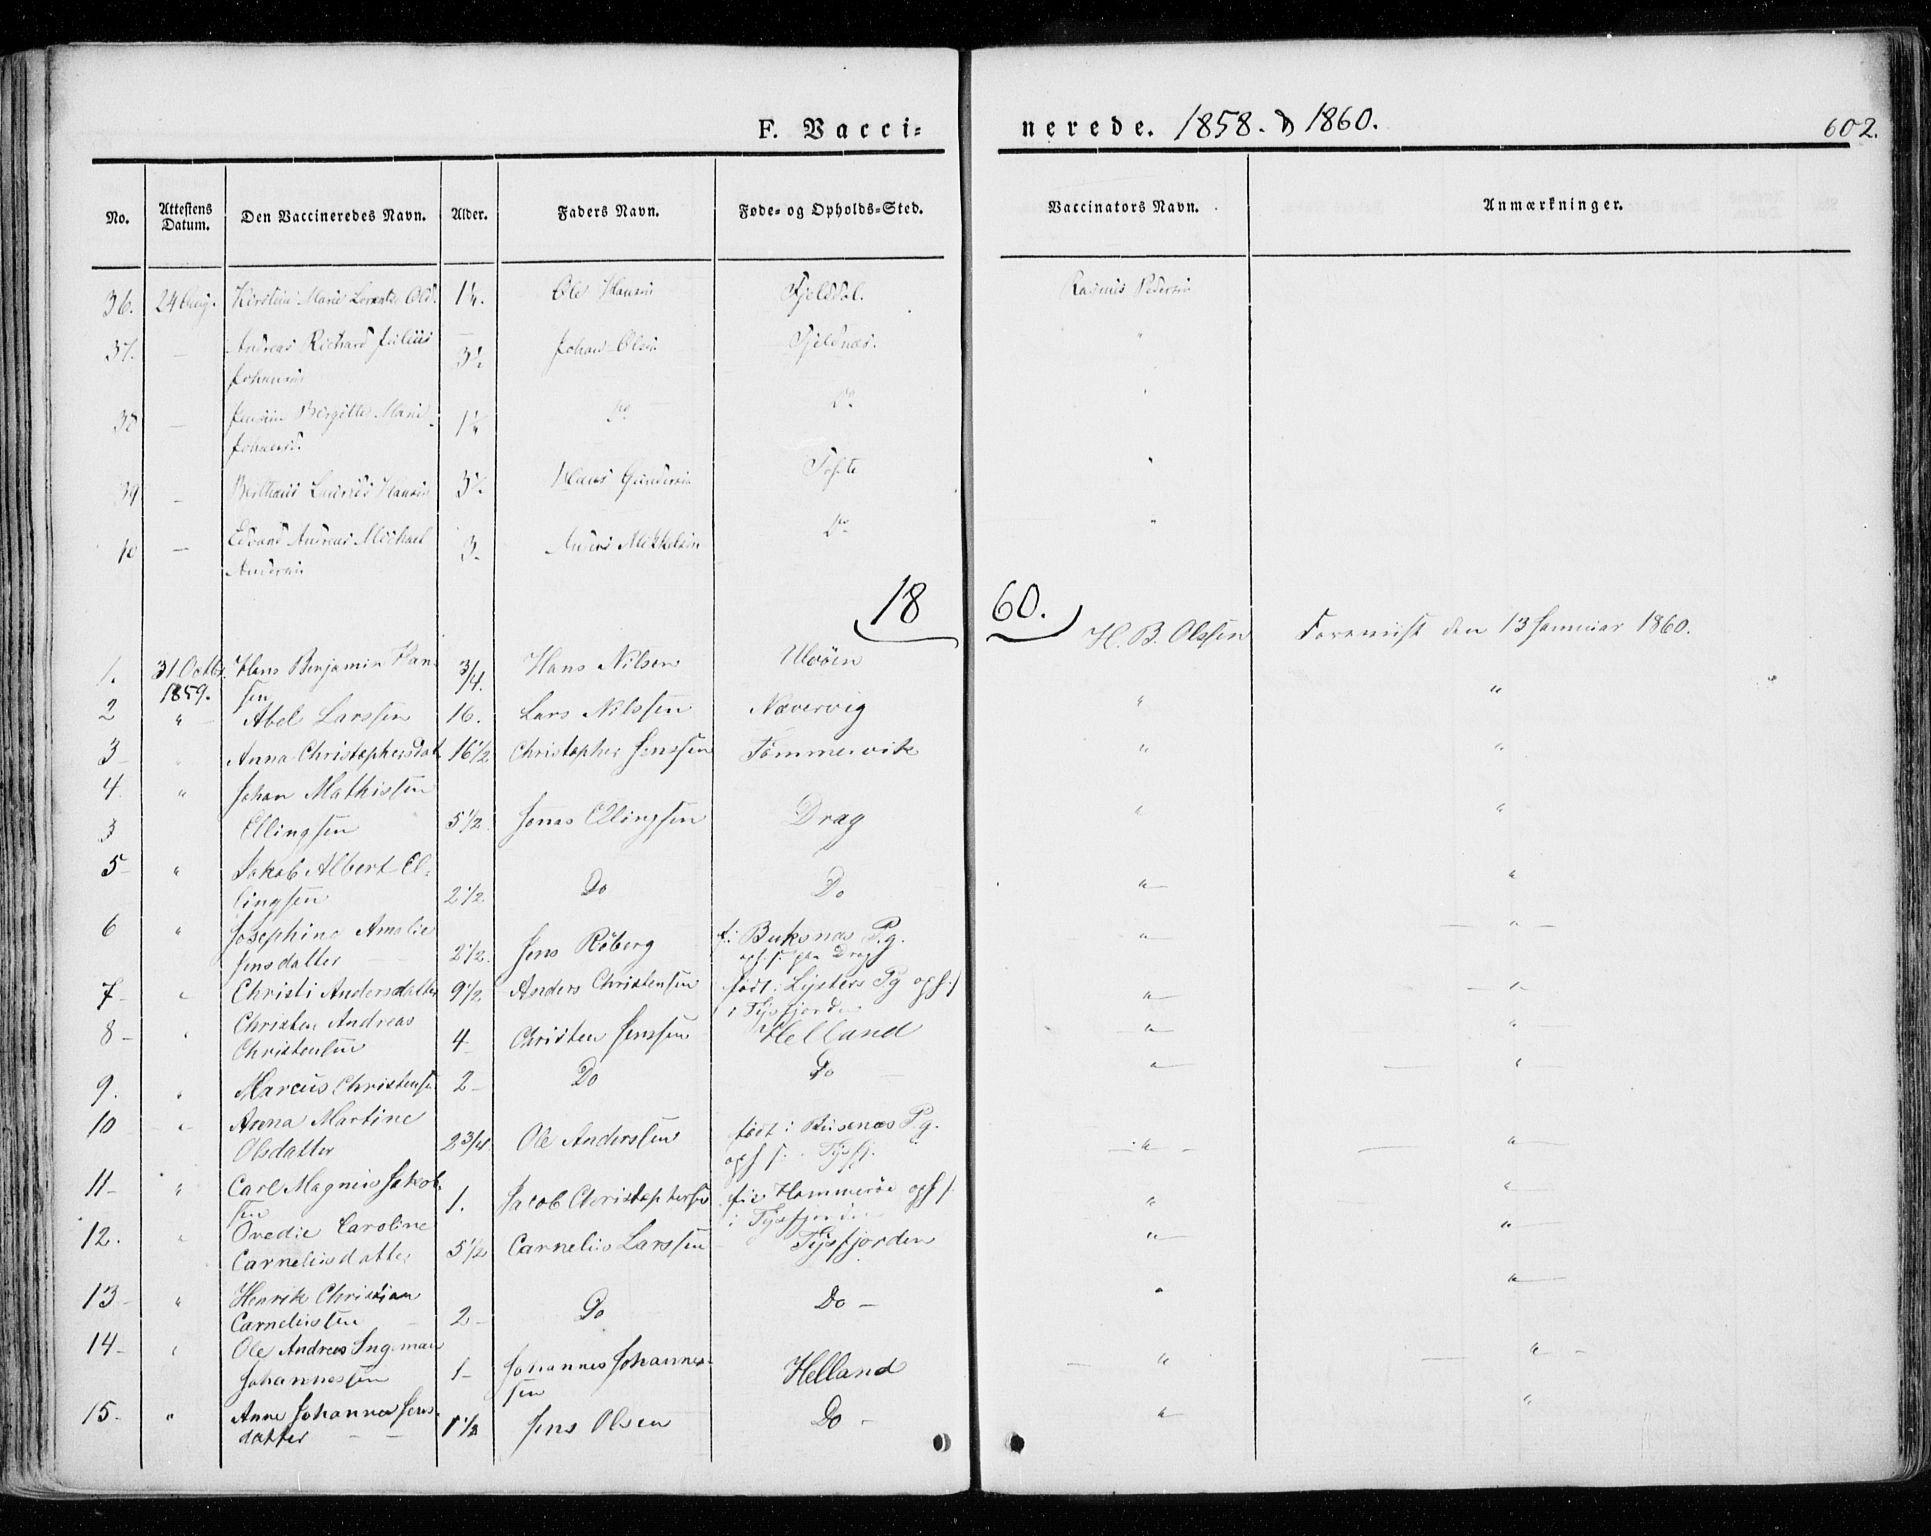 F. Vacci=
nerede. 1858. & 1860.
602.
No.
Attestens Datum.
Den Vaccineredes Navn.
Alder.
Faders Navn.
Føde- og Opholds-Sted.
Vaccinators Navn.
Anmærkninger.
36. 24 Aug. Kirstine Marie 1¼. Ole Hansen Fjelddal. Rasmus Pedersen
37. — Andreas Richard Julius — Johan Olsen Fjeldnæs. "
Johansen
38 — Birgitte Marie 1¼ do do "
39 — Hansen Hans Gundersen Tofte "
— Edvard Andreas Michael 3- Anders Mikkelsen do "
Andersen
18 60.
H. B. Olssen Foreviist den 13 Januar 1860.
1. 31 Octbr. Hans Benjamin Han 3/4. Hans Nilsen Ulvöen
1859. sen "
2 " Abel Larssen 16. Lars Nilssen Nævervig "
3 Anna Christophersdat 16 1/2 Christopher Jenssen Tømmervik " "
4. " Johan Mathissen
3 Ellingsen 5 1/2. Jonas Ellingsen Drag " "
5- " Jakob Albert El-
lingsen 2 1/2. Do Do " "
6 " Josephine Amalie f: Buksnæs P.g.
Jensdatter 2 1/2. Jens Röberg oph f. paa Drag " "
7- " Christi Andersdatter 9 1/2. Anders Christensen født i Lysters Pg oph f
i Tysfjorden " "
8- " Christen Andreas
Christensen 4- Christen Jenssen Helland " "
9. " Marcus Christensen 2- Do Do " "
10 " Anna Martine født i Pg.
Olsdatter 2 3/4. Ole Anderssen oph f. i Tysfj. " "
11- " Carl Magnus Jakob-
sen 1. Jacob Christophersen f: i Hammerøe oph f. " "
i Tysfjorden
12. " Ovedie Caroline
Carneliusdatter 5 1/2 Carnelius Larssen Tysfjorden " "
13- " Henrik Christian
Carneliussen 2- Do Do - " "
14- " Ole Andreas Ingeman
Johannessen 1- Johannes Johannes-
sen Helland " "
15. " Anne Johanna Jens-
datter 1 1/2 Jens Olsen Do - " "